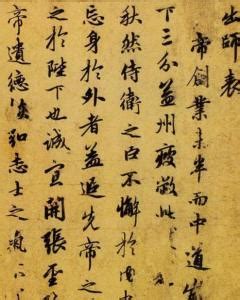 出師表
帝創業未半而中道崩
下三分益州疲敝此
秋然侍衛之臣不懈於内
忘身於外者蓋追先帝之
之於陛下也誠宜開張聖
帝遺德恢弘志士之氣不